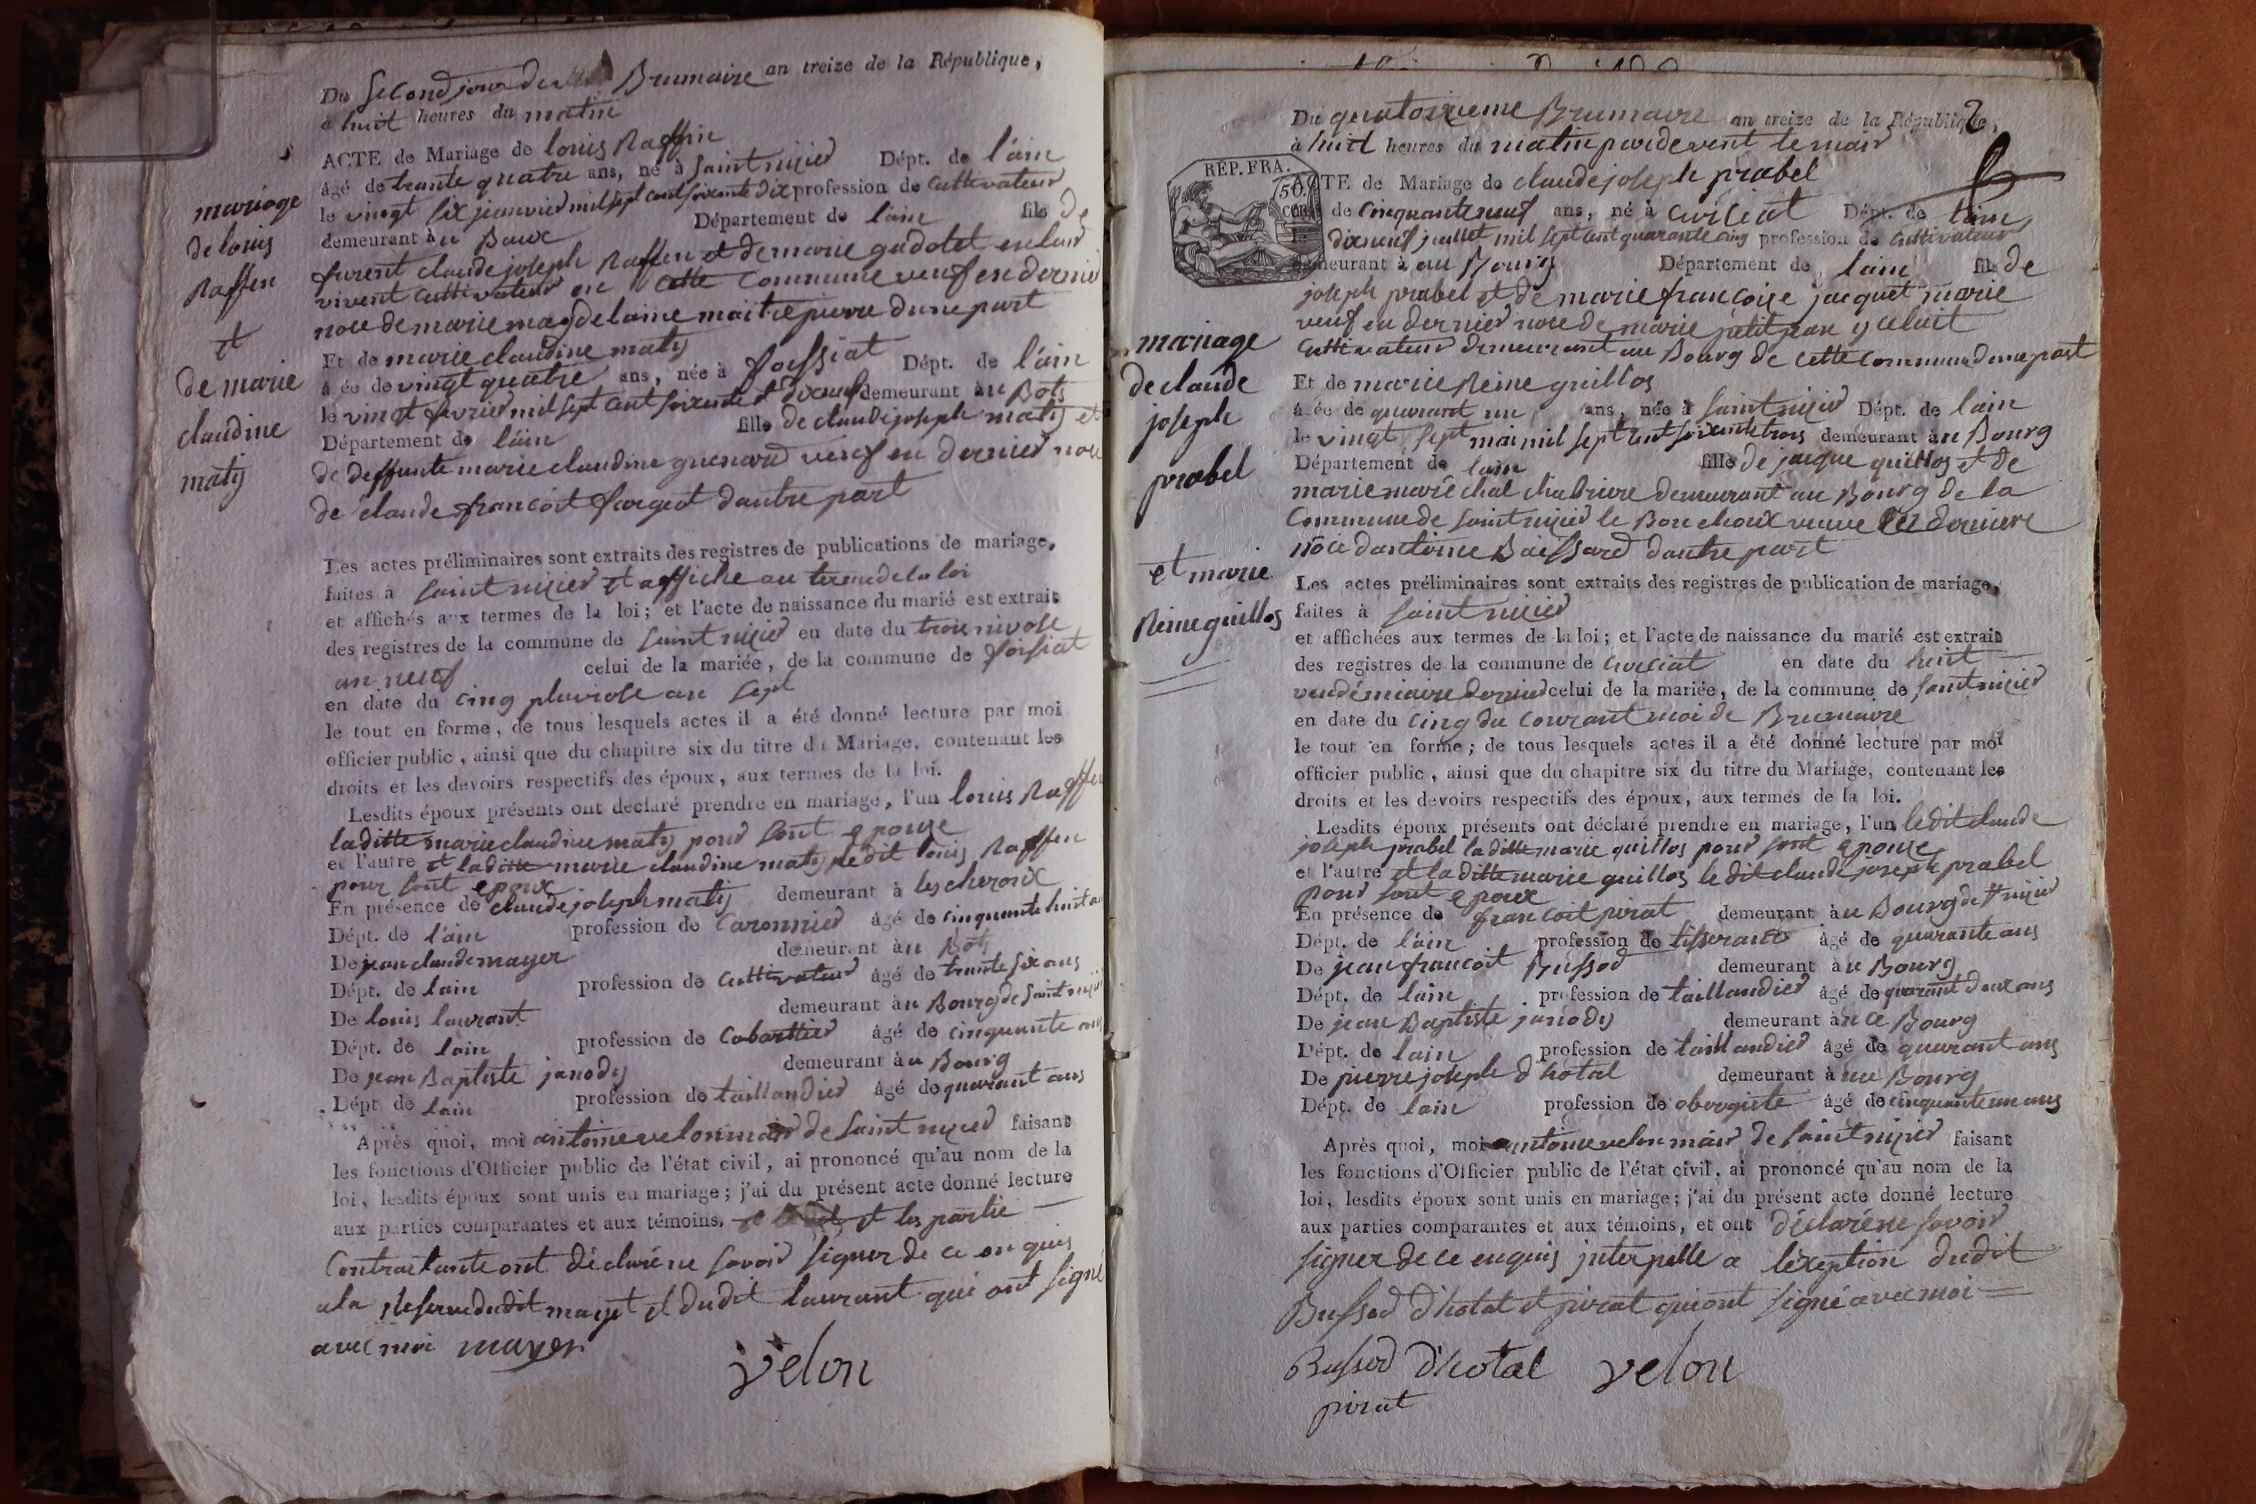 Du Second jour de Brumaire an treize de la République,
à huit heures du matin
ACTE de Mariage de louis Raffin
âgé de trante quatre ans, né à Saint nizier Dépt. de l'ain
le vingt six jeanvier mil sept cent soixante dix profession de Cultivateur
demeurant à u Baux Département de l'ain fils de
furent claude joseph Raffin et de marie gadolet en leur
vivent Cultivateur en Cette Commune veuf en dernier
noce de marie magdelaine maitrepierre dune part
Et de marie claudine maty
âgée de vingt quatre ans, née à forssiat Dépt. de l'ain
le vingt fevrier mil sept cent soixante et dixneuf demeurant àu Bots
Département de l'ain fille de claude joseph maty et
de deffunte marie claudine guenard veuf en dernier noce
de claude francoit forgeot dautre part
mariage
de louis
Raffen
et
de marie
claudine
maty
Les actes préliminaires sont extraits des registres de publications de mariage,
faites à Saint nizier et affiche au terme de la loi
et affichés aux termes de la loi; et l'acte de naissance du marié est extrait
des registres de la commune de Saint nizier en date du trois nivose
an neuf celui de la mariée, de la commune de forsiat
en date du cinq pluviose an sept
le tout en forme, de tous lesquels actes il a été donné lecture par moi
officier public, ainsi que du chapitre six du titre du Mariage, contenant les
droits et les devoirs respectifs des époux, aux termes de la loi.
Lesdits époux présents ont déclaré prendre en mariage, l'un louis Raffen
la ditte marie claudine maty pour sont epouze
et l'autre et la ditte marie claudine maty le dit louis Raffen
pour sont epoux
En présence de claude joseph maty demeurant à les cheroix
Dépt. de l'ain profession de Caronnier âgé de cinquante huit ans
De jean claude mayer demeurant àu Bots
Dépt. de lain profession de Cultivateur âgé de trante six ans
De louis laurant demeurant àu Bourg de Saint nizier
Dépt. de lain profession de Cabarttier âgé de cinquante ans
De jean Baptiste janody demeurant àu Bourg
Dépt. de lain profession de taillandier âgé de quarant ans
Après quoi, moi antoine velon mair de Saint nizier faisant
les fonctions d'Officier public de l'état civil, ai prononcé qu'au nom de la
loi, lesdits époux sont unis en mariage; j'ai du présent acte donné lecture
aux parties comparantes et aux témoins, et les partie
Contraitante ont déclaré ne savoir signer de ce en quis
a la Reserve dudit mayet et dudit laurant qui ont signé
avec moi mayer
velon
2
Du quatorzieme Brumaire an treize de la République,
à huit heures du matin pardevent le mair
RÉP. FRA.
50
CEN.
ACTE de Mariage de claude joseph prabel
de cinquante neuf ans, né à Cuisiat Dépt. de lain
le dixneuf juillet mil sept cent quarante cinq profession de Cultivateur
demeurant à au Bourg Département de lain fils de
joseph prabel et de marie francoise jacquet marie
veuf en dernier noce de marie petit jean y celuit
Cultivateur demeurant au Bourg de Cette Commune dune part
Et de marie Reine guillos
âgée de quarant un ans, née à Saint nizier Dépt. de lain
le vingt sept mai mil sept cent soixante trois demeurant àu Bourg
Département de lain fille de jacque guillos et de
marie maréchal chabriere demeurant au Bourg de la
Commune de Saint nizier le Bouchoux veuve en derniere
noce dantoine Baissard dautre part
mariage
de claude
joseph
prabel
et marie
Reine guillos
Les actes préliminaires sont extraits des registres de publication de mariage,
faites à Saint nizier
et affichées aux termes de la loi; et l'acte de naissance du marié est extrait
des registres de la commune de Cuisiat en date du huit
vendémiaire dernier celui de la mariée, de la commune de Saint nizier
en date du cinq du Courant moi de Brumaire
le tout en forme; de tous lesquels actes il a été donné lecture par moi
officier public, ainsi que du chapitre six du titre du Mariage, contenant les
droits et les devoirs respectifs des époux, aux termes de la loi.
Lesdits époux présents ont déclaré prendre en mariage, l'un le dit claude
joseph prabel la ditte marie guillos pour sont epouze
et l'autre et la ditte marie guillos le dit claude joseph prabel
pour sont epoux
En présence de francoit pirat demeurant àu Bourg de St nizier
Dépt. de l'ain profession de tisserant âgé de quarante ans
De jean francoit Bussod demeurant àu Bourg
Dépt. de lain profession de taillandier âgé de quarant deux ans
De jean Baptiste janody demeurant àu ce Bourg
Dépt. de lain profession de taillandier âgé de quarant ans
De pierre joseph d'hotal demeurant à au Bourg
Dépt. de lain profession de obergiste âgé de cinquante un ans
Après quoi, moi antoine velon mair de Saint nizier faisant
les fonctions d'Officier public de l'état civil, ai prononcé qu'au nom de la
loi, lesdits époux sont unis en mariage; j'ai du présent acte donné lecture
aux parties comparantes et aux témoins, et ont déclaré ne savoir
signer de ce enquis jnterpelle a lexeption dudit
Bussod d'hotal et pirat qui ont signé avec moi
Bussod d'hotal velon
pirat